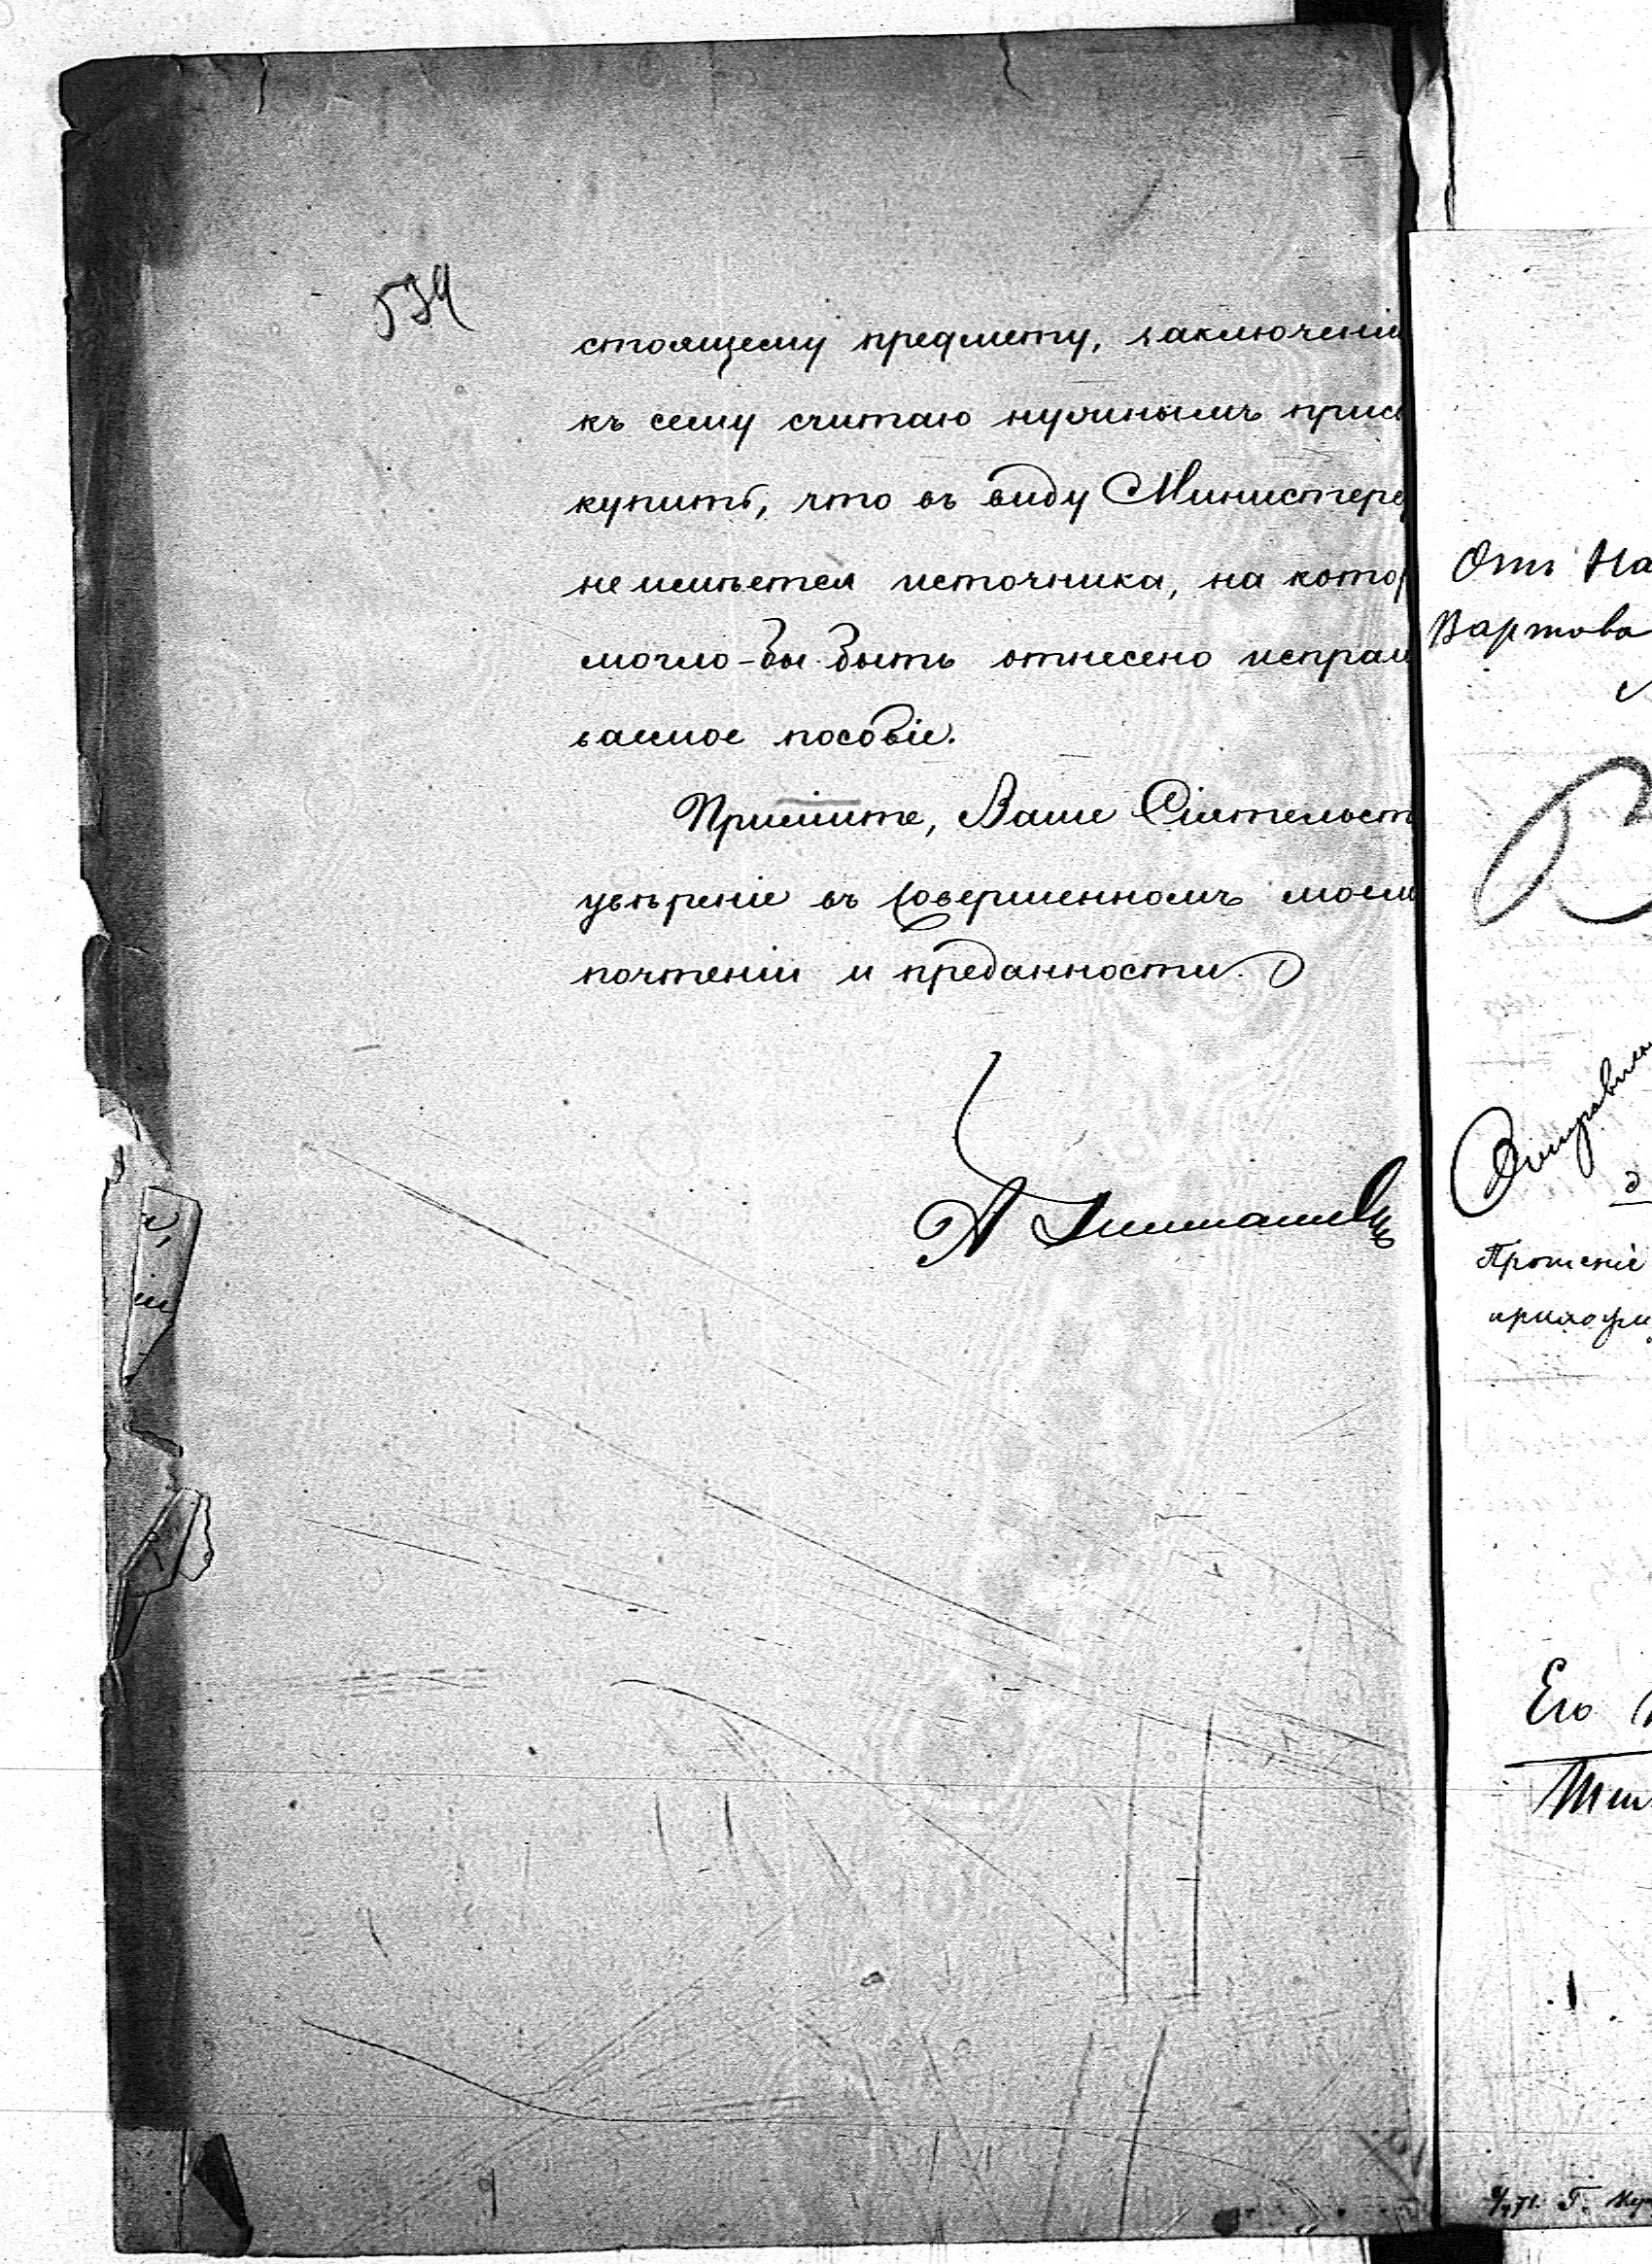 574
стоящему предмету, заключенія
къ сему считаю нужнымъ присо
купить, что въ виду Министерс
не имѣется источника, на котор
могло-бы быть отнесено испраш
ваемое пособіе.
Примите, Ваше Сіятельст
увѣреніе въ совершенномъ моем
почтеніи и преданности.
А Тимашевъ
Отъ На
Вартова
Прошеніе
Его